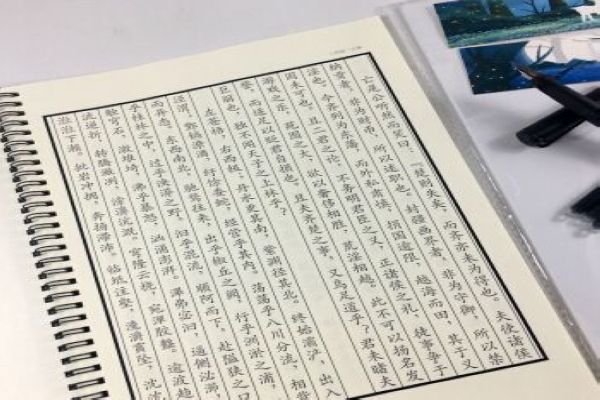 亡是公听然而笑曰：“楚则失矣，而齐亦未为得也。夫使诸侯
纳贡者，非为财币，所以述职也。封疆画界者，非为守御，所以禁
淫也。今齐列为东藩，而外私肃慎，捐国逾限，越海而田，其于义
固未可也。且二君之论，不务明君臣之义，正诸侯之礼，徒事争于
游戏之乐，苑囿之大，欲以奢侈相胜，荒淫相越。此不可以扬名发
誉，而适足以贬君自损也。且夫齐楚之事，又乌足道乎？君未睹夫
巨丽也，独不闻天子之上林乎？
左苍梧，右西极，丹水更其南，紫渊径其北。终始灞浐，出入
泾渭，酆镐潦潏，纡馀委蛇，经营乎其内。荡荡乎八川分流，相背
而异态，东西南北，驰骛往来，出乎椒丘之阙，行乎洲淤之浦，
乎桂林之中，过乎泱漭之野，汩乎混流，顺阿而下，赴隘狭之口
触穹石，激堆埼，沸乎暴怒，汹涌澎湃。滭弗宓汩，逼侧泌瀄，
流逆折，转腾潎洌，滂濞沆溉。穹隆云桡，宛潬胶盭。逾波趋
涖涖下濑。批岩冲拥，奔扬滞沛。临坻注壑，瀺灂霣坠，沈沈